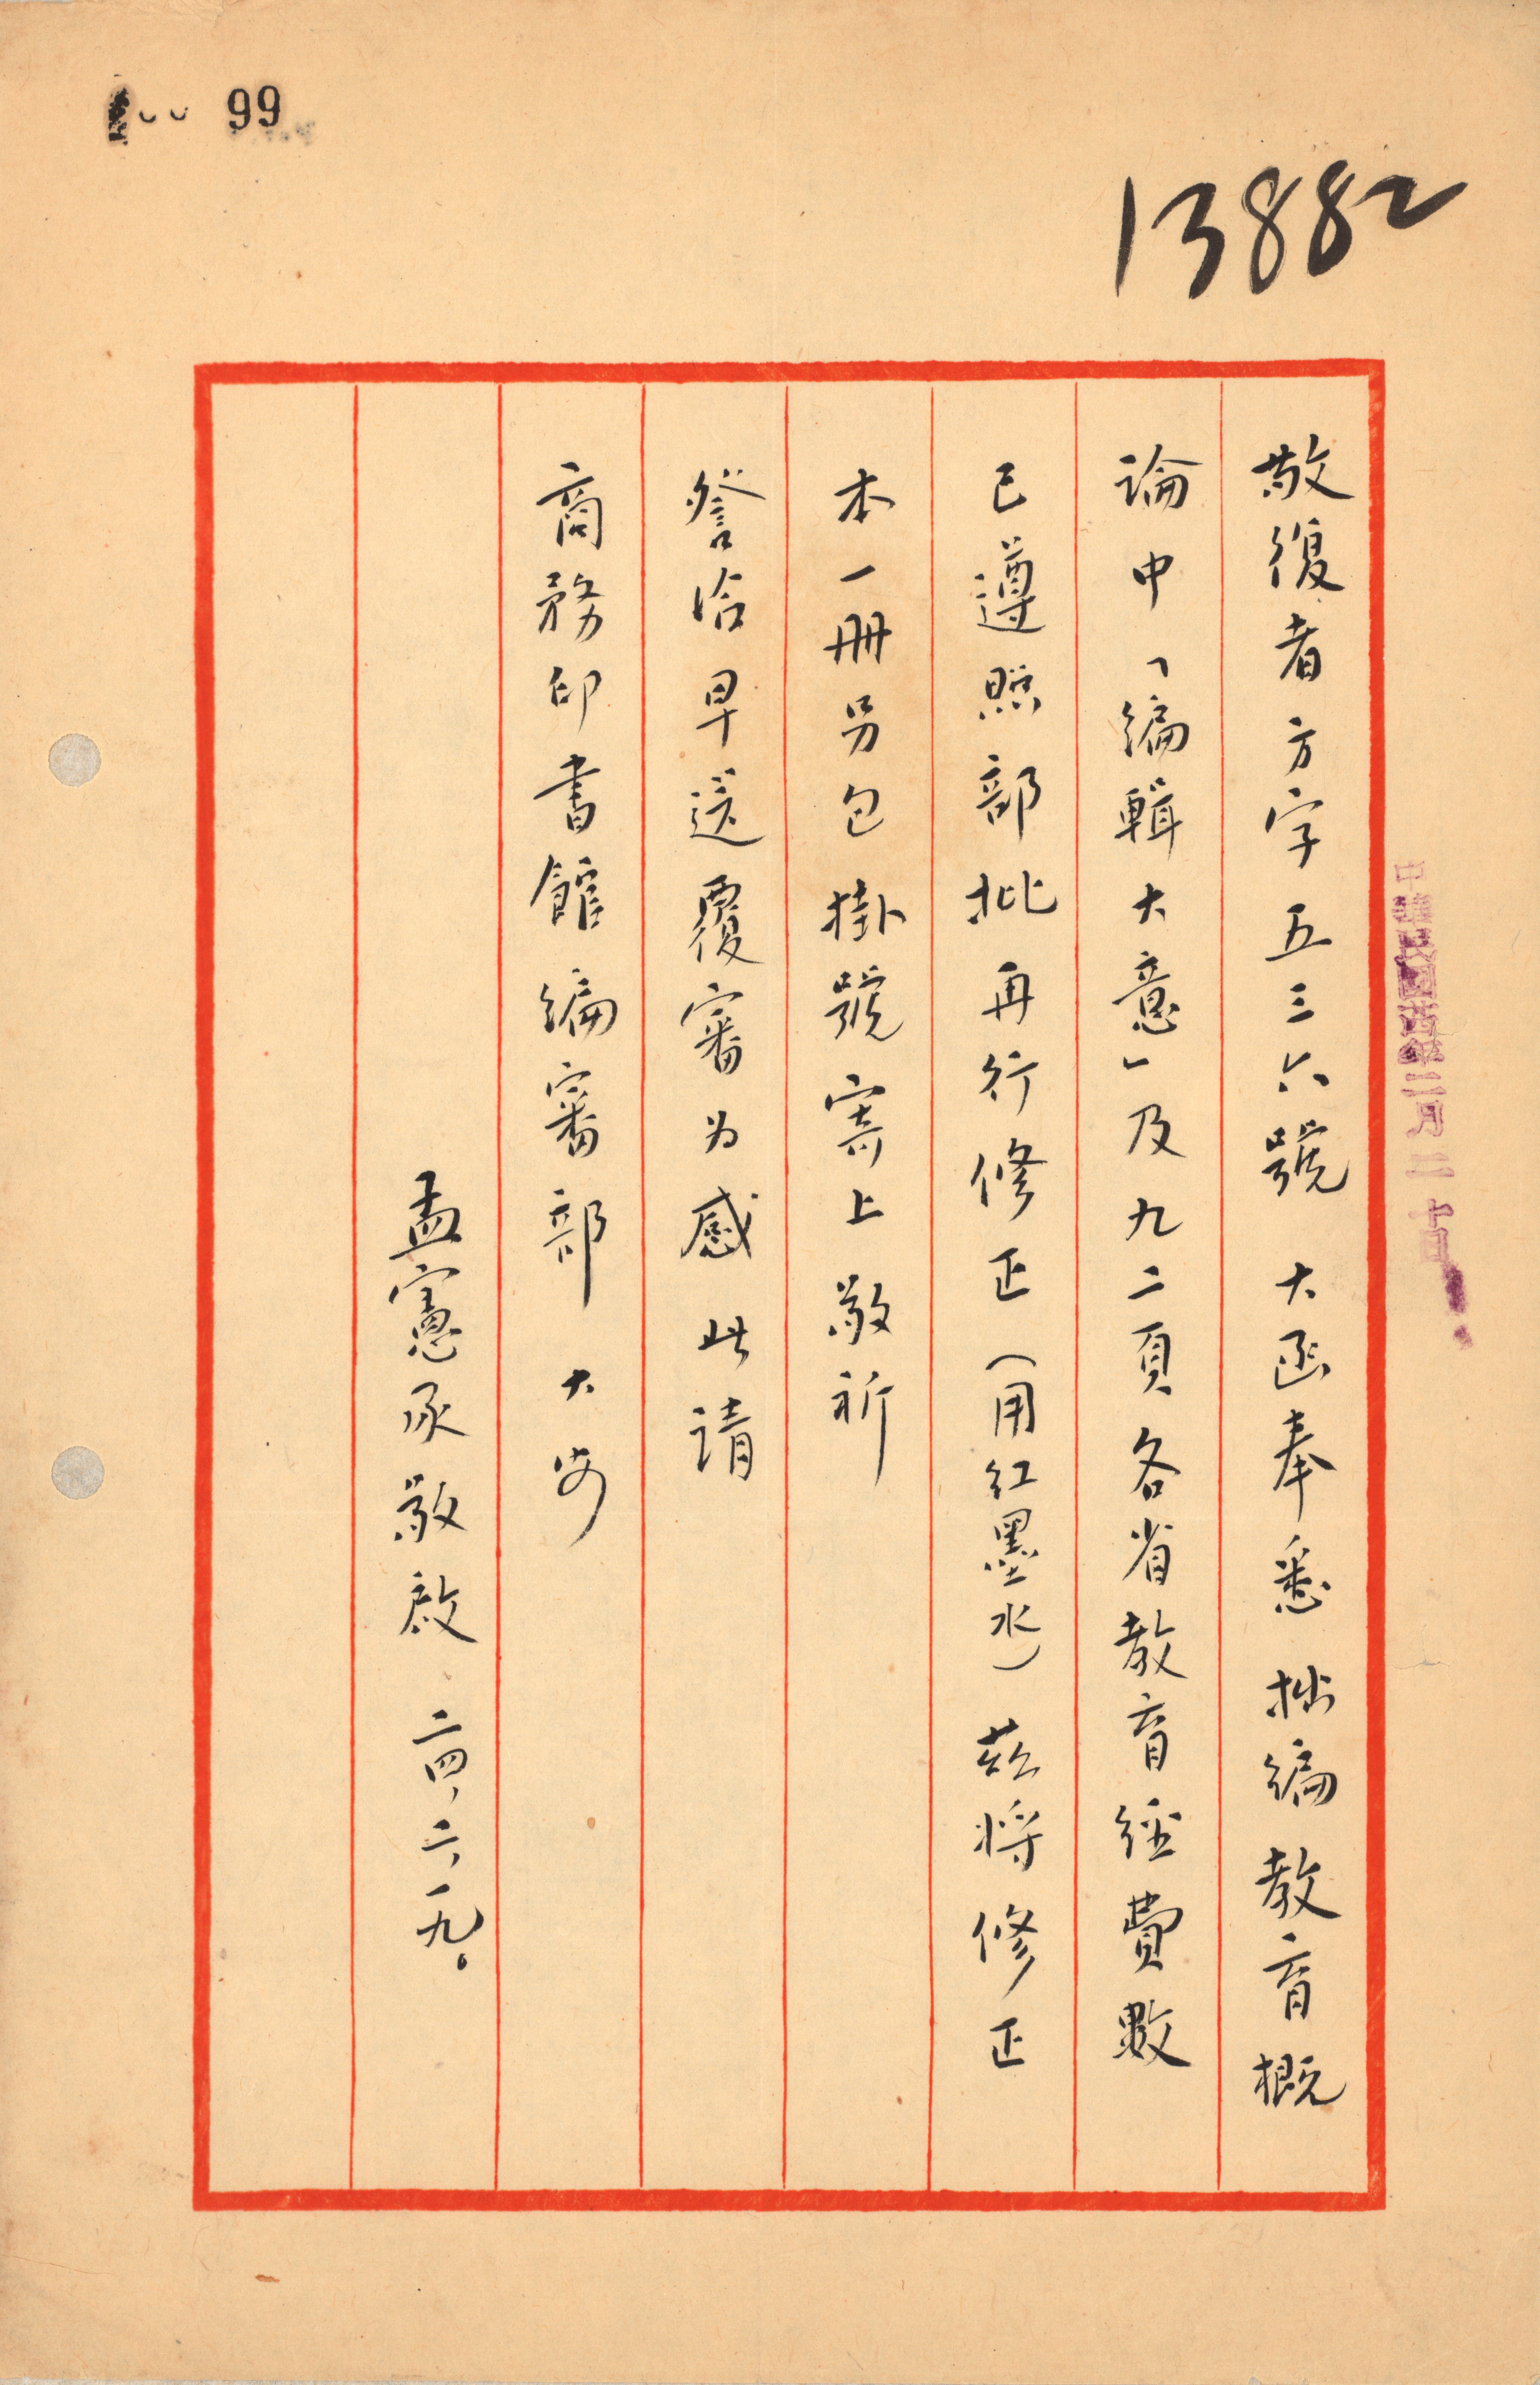 99
13882
敬復者方字五三六號　大函奉悉　拙編教育概
論中「編輯大意」及九二頁各省教育經費數
已遵照部批再行修正（用紅墨水）茲將修正
本一冊另包掛號寄上敬祈
詧洽早送覆審为感　此請
商務印書館編審部　大安
孟憲承敬啟　二四、二、一九。